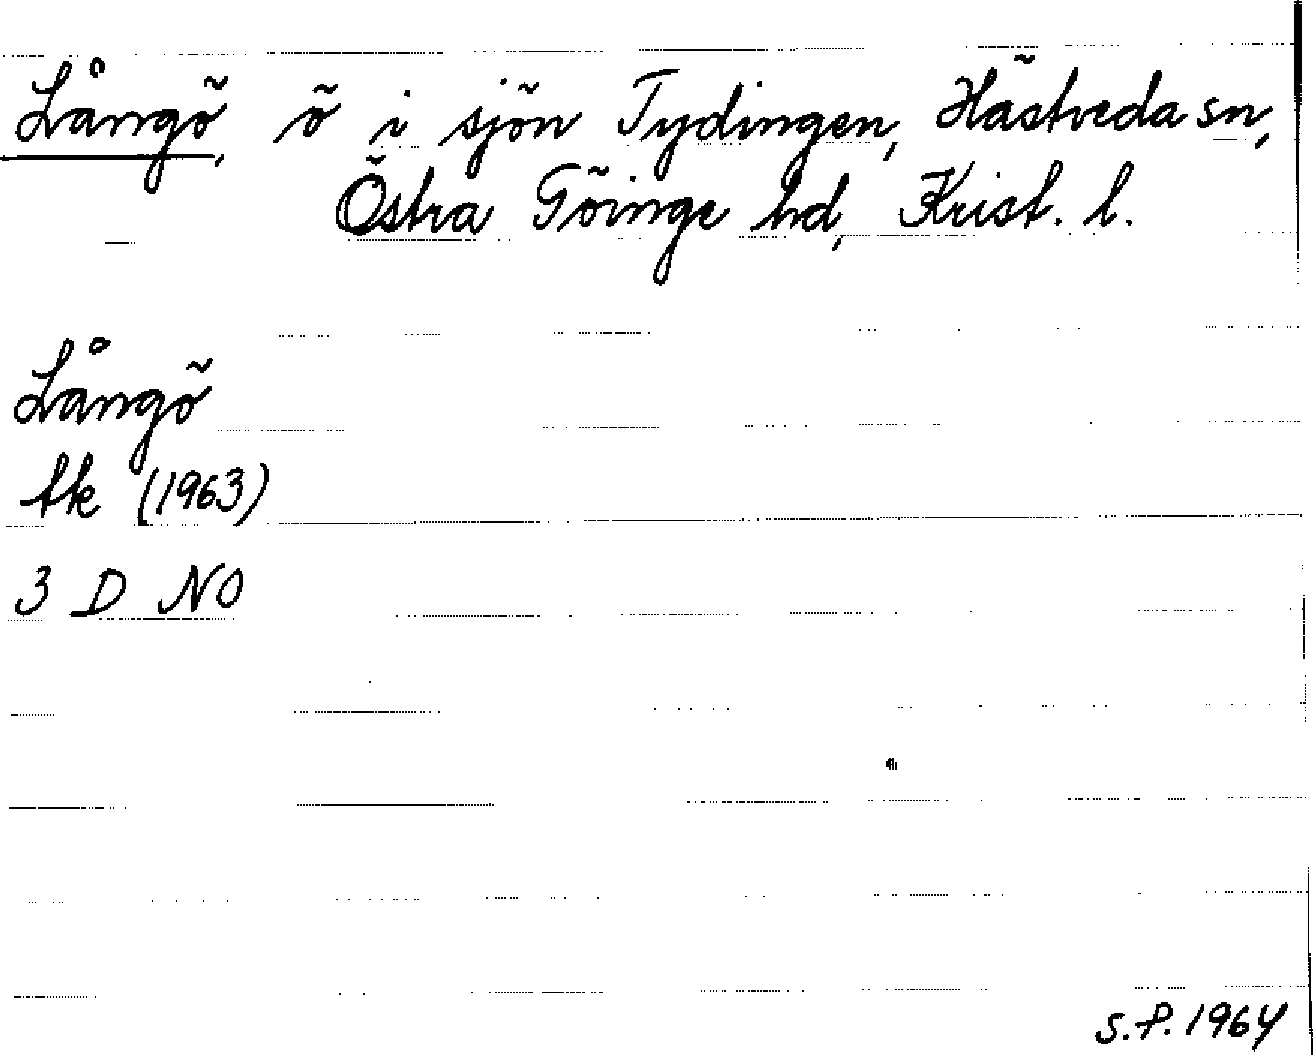 Långö, ö i sjön Tydingen, Hästveda sn,
Östra Göinge hd, Krist. l.
Långö
tk (1963)
3 D NO
S.P. 1964